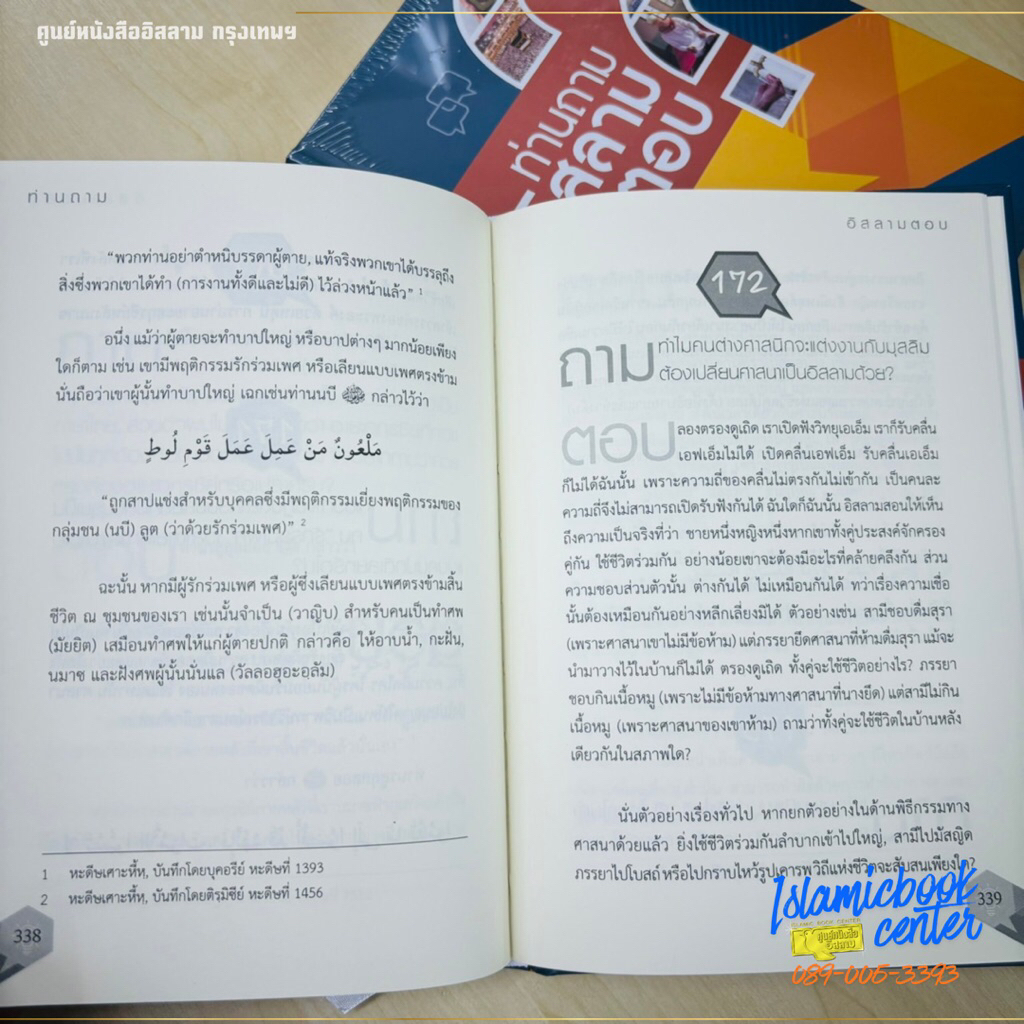 ศูนย์หนังสืออิสลาม กรุงเทพฯ
ท่านถาม
สลาม
ตอบ
ท่านถาม
“พวกท่านอย่าตำหนิบรรดาผู้ตาย, แท้จริงพวกเขาได้บรรลุถึง
สิ่งซึ่งพวกเขาได้ทำ (การงานทั้งดีและไม่ดี) ไว้ล่วงหน้าแล้ว” 1
อนึ่ง แม้ว่าผู้ตายจะทำบาปใหญ่ หรือบาปต่างๆ มากน้อยเพียง
ใดก็ตาม เช่น เขามีพฤติกรรมรักร่วมเพศ หรือเลียนแบบเพศตรงข้าม
นั่นถือว่าเขาผู้นั้นทำบาปใหญ่ เฉกเช่นท่านนบี ﷺ กล่าวไว้ว่า
مَلْعُونٌ مَنْ عَمِلَ عَمَلَ قَوْمِ لُوطٍ
“ถูกสาปแช่งสำหรับบุคคลซึ่งมีพฤติกรรมเยี่ยงพฤติกรรมของ
กลุ่มชน (นบี) ลูต (ว่าด้วยรักร่วมเพศ)” 2
ฉะนั้น หากมีผู้รักร่วมเพศ หรือผู้ซึ่งเลียนแบบเพศตรงข้ามสิ้น
ชีวิต ณ ชุมชนของเรา เช่นนั้นจำเป็น (วาญิบ) สำหรับคนเป็นทำศพ
(มัยยิต) เสมือนทำศพให้แก่ผู้ตายปกติ กล่าวคือ ให้อาบน้ำ, กะฝั่น,
นมาซ และฝังศพผู้นั้นนั่นแล (วัลลอฮุอะอฺลัม)
1 หะดีษเศาะหี้ห, บันทึกโดยบุคอรีย์ หะดีษที่ 1393
2 หะดีษเศาะหี้ห, บันทึกโดยติรฺมิซีย์ หะดีษที่ 1456
338
อิสลามตอบ
172
ถาม ทำไมคนต่างศาสนิกจะแต่งงานกับมุสลิม
ต้องเปลี่ยนศาสนาเป็นอิสลามด้วย?
ตอบ ลองตรองดูเถิด เราเปิดฟังวิทยุเอเอ็ม เราก็รับคลื่น
เอฟเอ็มไม่ได้ เปิดคลื่นเอฟเอ็ม รับคลื่นเอเอ็ม
ก็ไม่ได้ฉันนั้น เพราะความถี่ของคลื่นไม่ตรงกันไม่เข้ากัน เป็นคนละ
ความถี่จึงไม่สามารถเปิดรับฟังกันได้ ฉันใดก็ฉันนั้น อิสลามสอนให้เห็น
ถึงความเป็นจริงที่ว่า ชายหนึ่งหญิงหนึ่งหากเขาทั้งคู่ประสงค์จักครอง
คู่กัน ใช้ชีวิตร่วมกัน อย่างน้อยเขาจะต้องมีอะไรที่คล้ายคลึงกัน ส่วน
ความชอบส่วนตัวนั้น ต่างกันได้ ไม่เหมือนกันได้ ทว่าเรื่องความเชื่อ
นั้นต้องเหมือนกันอย่างหลีกเลี่ยงมิได้ ตัวอย่างเช่น สามีชอบดื่มสุรา
(เพราะศาสนาเขาไม่มีข้อห้าม) แต่ภรรยายึดศาสนาที่ห้ามดื่มสุรา แม้จะ
นำมาวางไว้ในบ้านก็ไม่ได้ ตรองดูเถิด ทั้งคู่จะใช้ชีวิตอย่างไร? ภรรยา
ชอบกินเนื้อหมู (เพราะไม่มีข้อห้ามทางศาสนาที่นางยึด) แต่สามีไม่กิน
เนื้อหมู (เพราะศาสนาของเขาห้าม) ถามว่าทั้งคู่จะใช้ชีวิตในบ้านหลัง
เดียวกันในสภาพใด?
นั่นตัวอย่างเรื่องทั่วไป หากยกตัวอย่างในด้านพิธีกรรมทาง
ศาสนาด้วยแล้ว ยิ่งใช้ชีวิตร่วมกันลำบากเข้าไปใหญ่, สามีไปมัสญิด
ภรรยาไปโบสถ์ หรือไปกราบไหว้รูปเคารพ วิถีแห่งชีวิตจะสับสนเพียงใด?
339
Islamicbook
center
ISLAMIC BOOK CENTER
ศูนย์หนังสือ
อิสลาม
089-005-3393